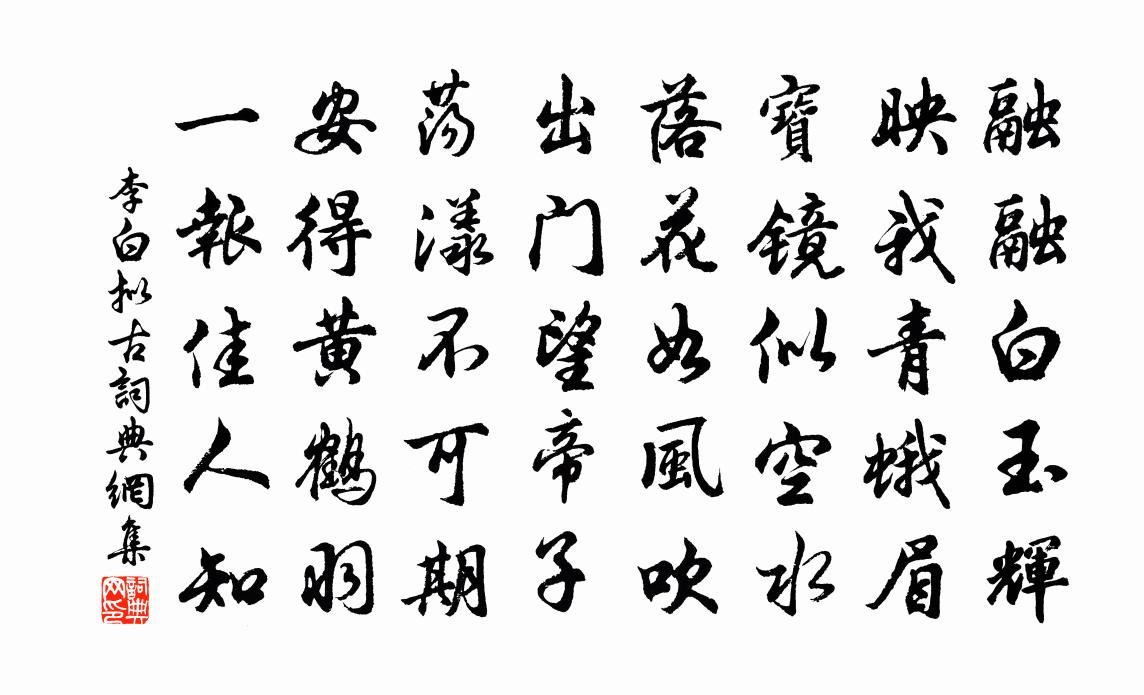 融融白玉輝
映我青蛾眉
寶鏡似空水
落花如風吹
出門望帝子
荡漾不可期
安得黄鶴羽
一報佳人知
李白拟古詞典網集
詞典网印